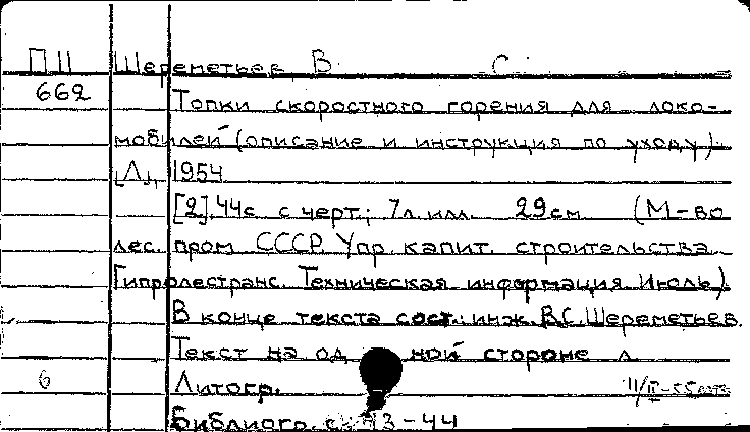 П11 Шереметьев В. С.
662 Топки скоростного горения для локо-
мобилей (описание и инструкция по уходу).
[Л.], 1954
[2], 44с. с черт.; 7л. илл. 29см (М-во
лес. пром СССР Упр. капит. строительства
Гипролестранс. Техническая информация. Июль).
В конце текста сост. инж. В.С. Шереметьев.
Текст на од ной стороне л.
6 Литогр.
Библиогр. с. 43-44